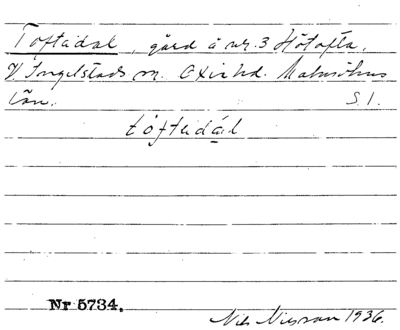 Toftadal, gård å nr. 3 Hötofta,
V Ingelstads sn. Oxie hd. Malmöhus
län. S. 1.
tóftadál
Nr 5734.
Nils Nilsson 1936.